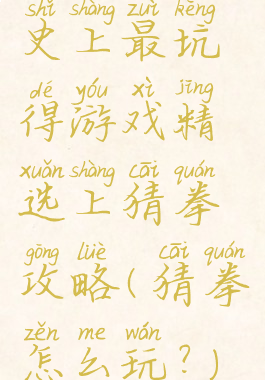 shǐ shàng zuì kēng
史上最坑
dé yóu xì jīng
得游戏精
xuǎn shàng cāi quán
选上猜拳
gōng lüè cāi quán
攻略(猜拳
zěn me wán
怎么玩?)